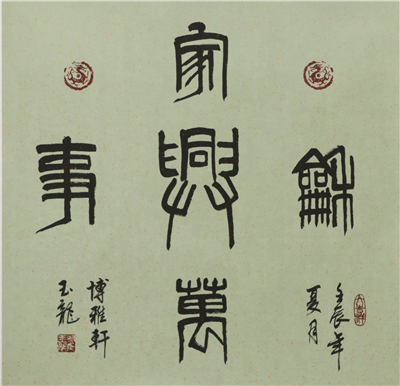 家
龢
萬
事
興
壬辰年
夏月
博雅軒
玉龍